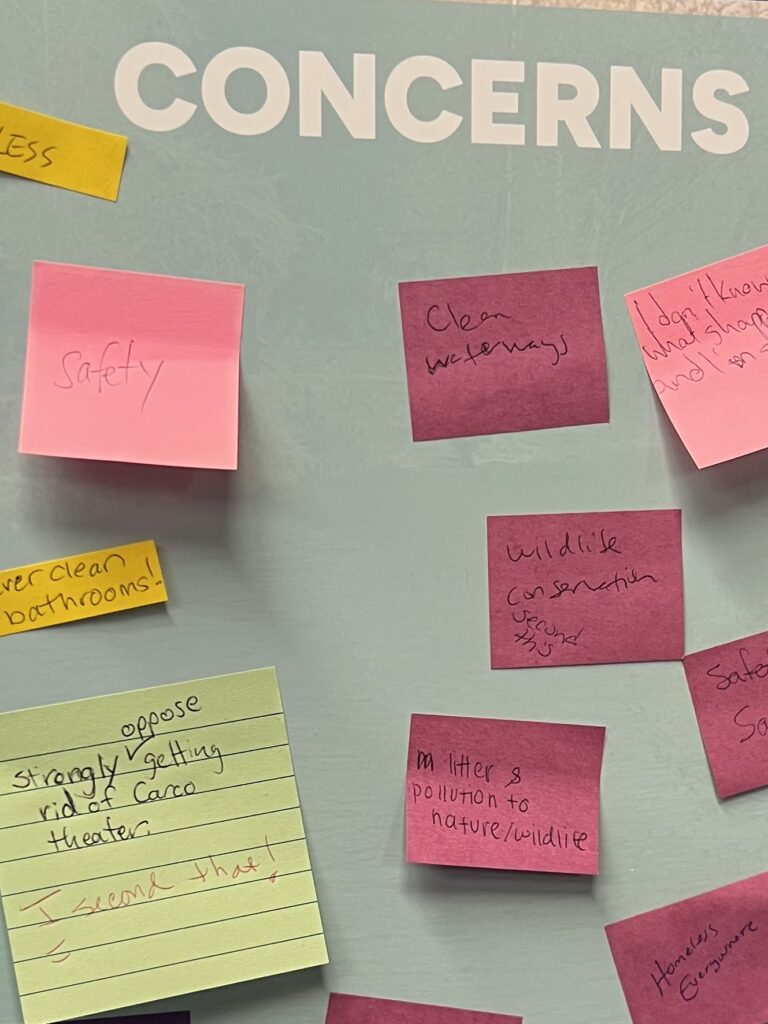 CONCERNS
LESS
Safety
Clean
waterways
I don't know
and
ver clean
bathrooms!
wildlife
conservation
second
this
Safe
oppose
strongly getting
rid of Carco
theater.
I second that!
litter &
pollution to
nature/wildlife
Homeless
Everywhere